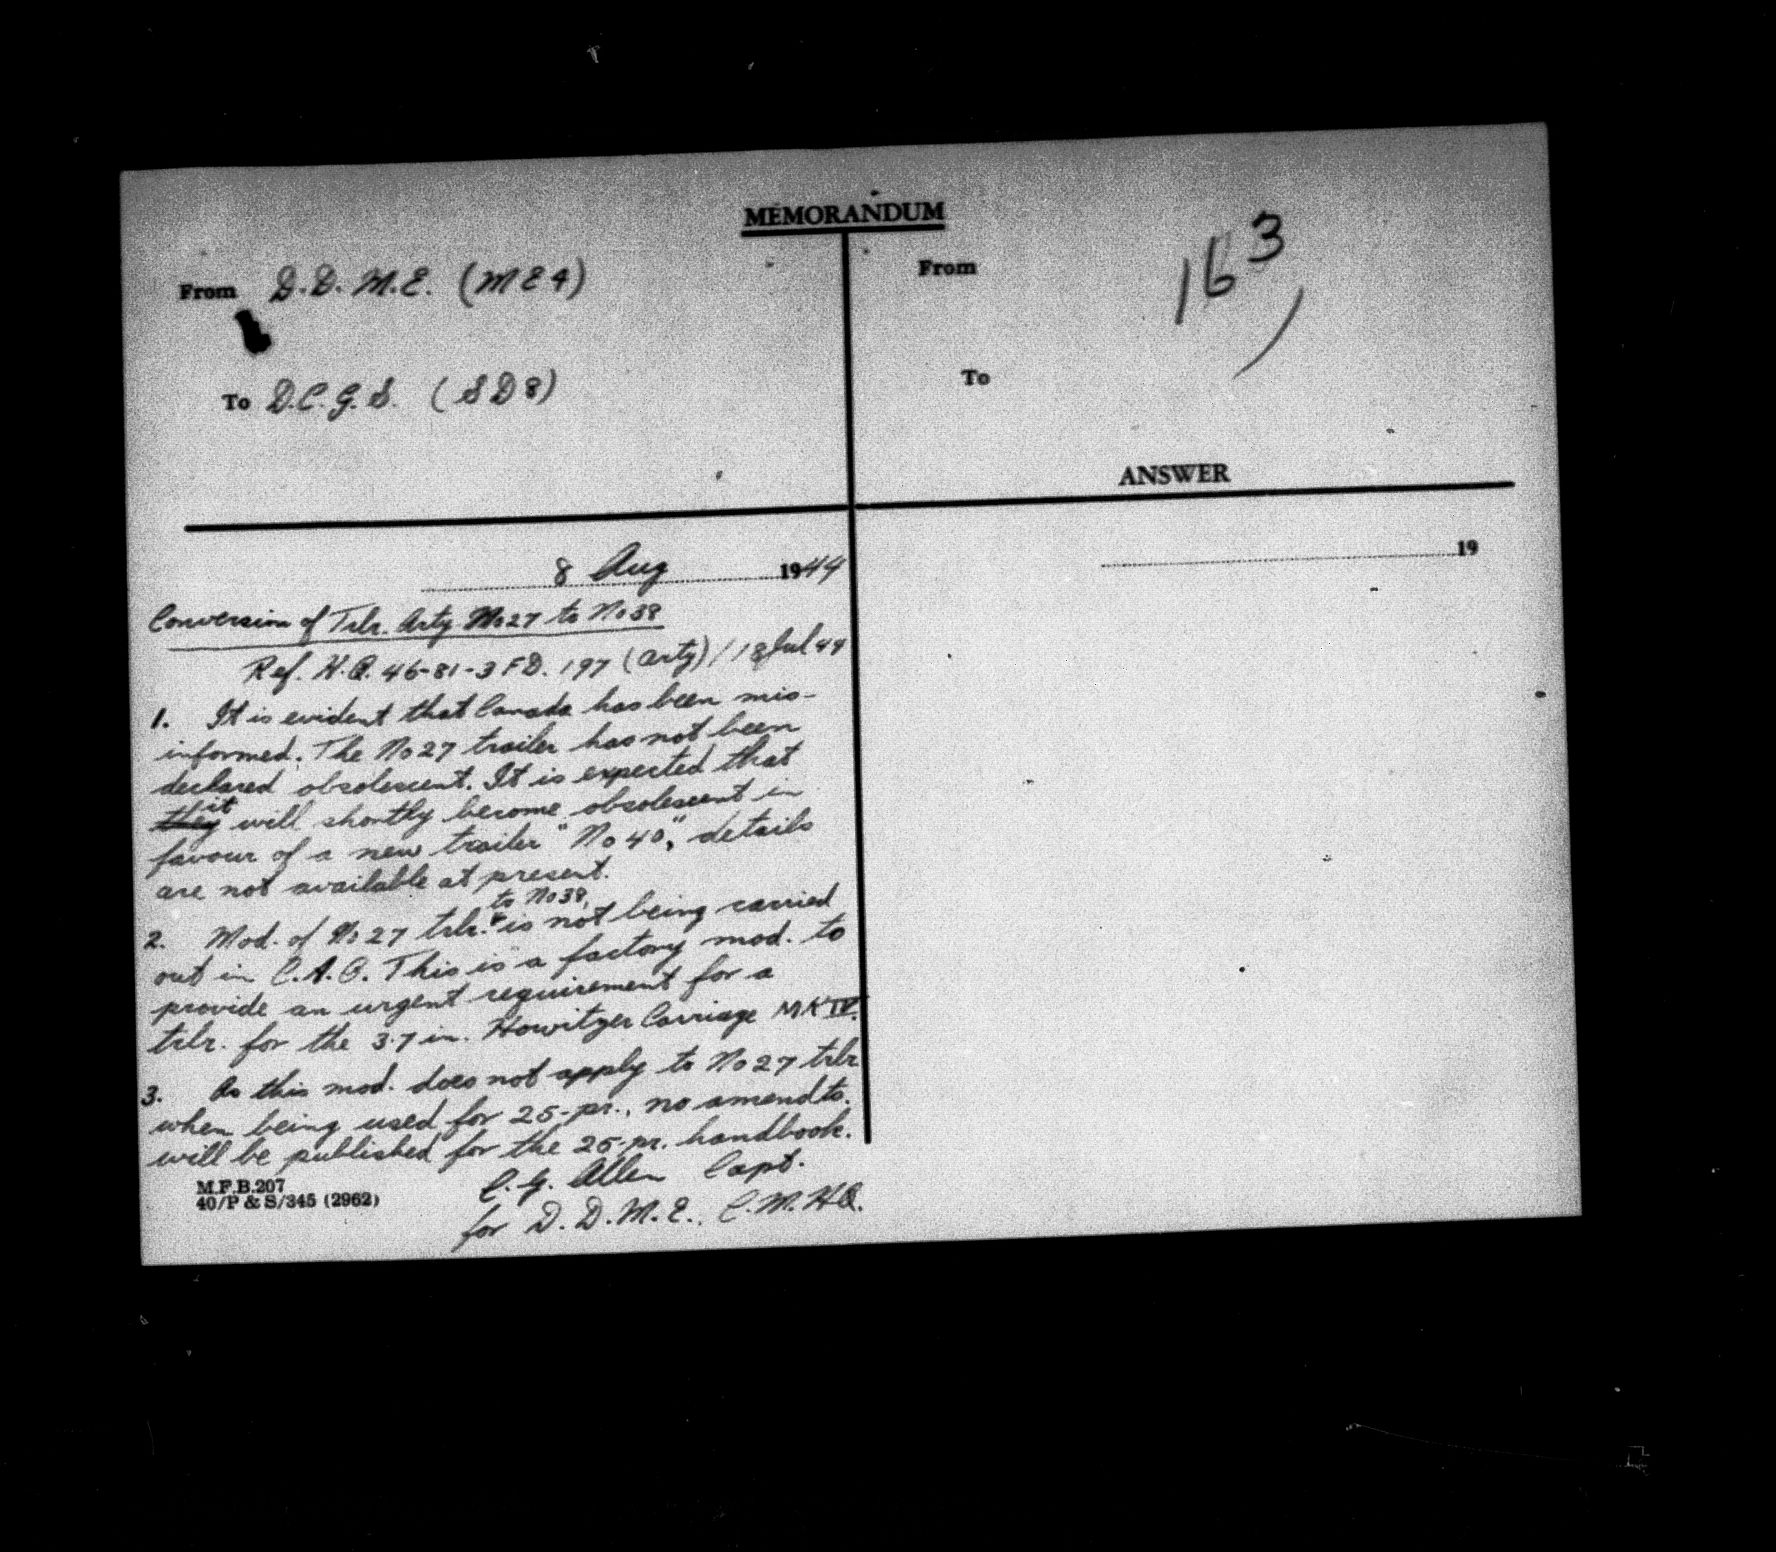 MEMORANDUM
From D.D.M.E. (ME4)
To D.C.G.S. (SD8)
8 Aug 1944
Conversion of Trlr. Arty No 27 to No 38
Ref. H.Q. 46-81-3 FD. 197 (Arty) / 18 Jul 44
1. It is evident that Canada has been mis-
informed. The No 27 trailer has not been
declared obsolescent. It is expected that
they it will shortly become obsolescent in
favour of a new trailer "No 40", details
are not available at present.
2. Mod. of No 27 trlr. to No 38, is not being carried
out in C.A.O. This is a factory mod. to
provide an urgent requirement for a
trlr. for the 3.7 in. Howitzer Carriage MK IV.
3. As this mod. does not apply to No 27 trlr
when being used for 25-pr., no amendts.
will be published for the 25-pr. handbook.
C. G. Allen Capt.
for D.D.M.E., C.M.HQ.
M.F.B.207
40/P & S/345 (2962)
163
From
To
ANSWER
19